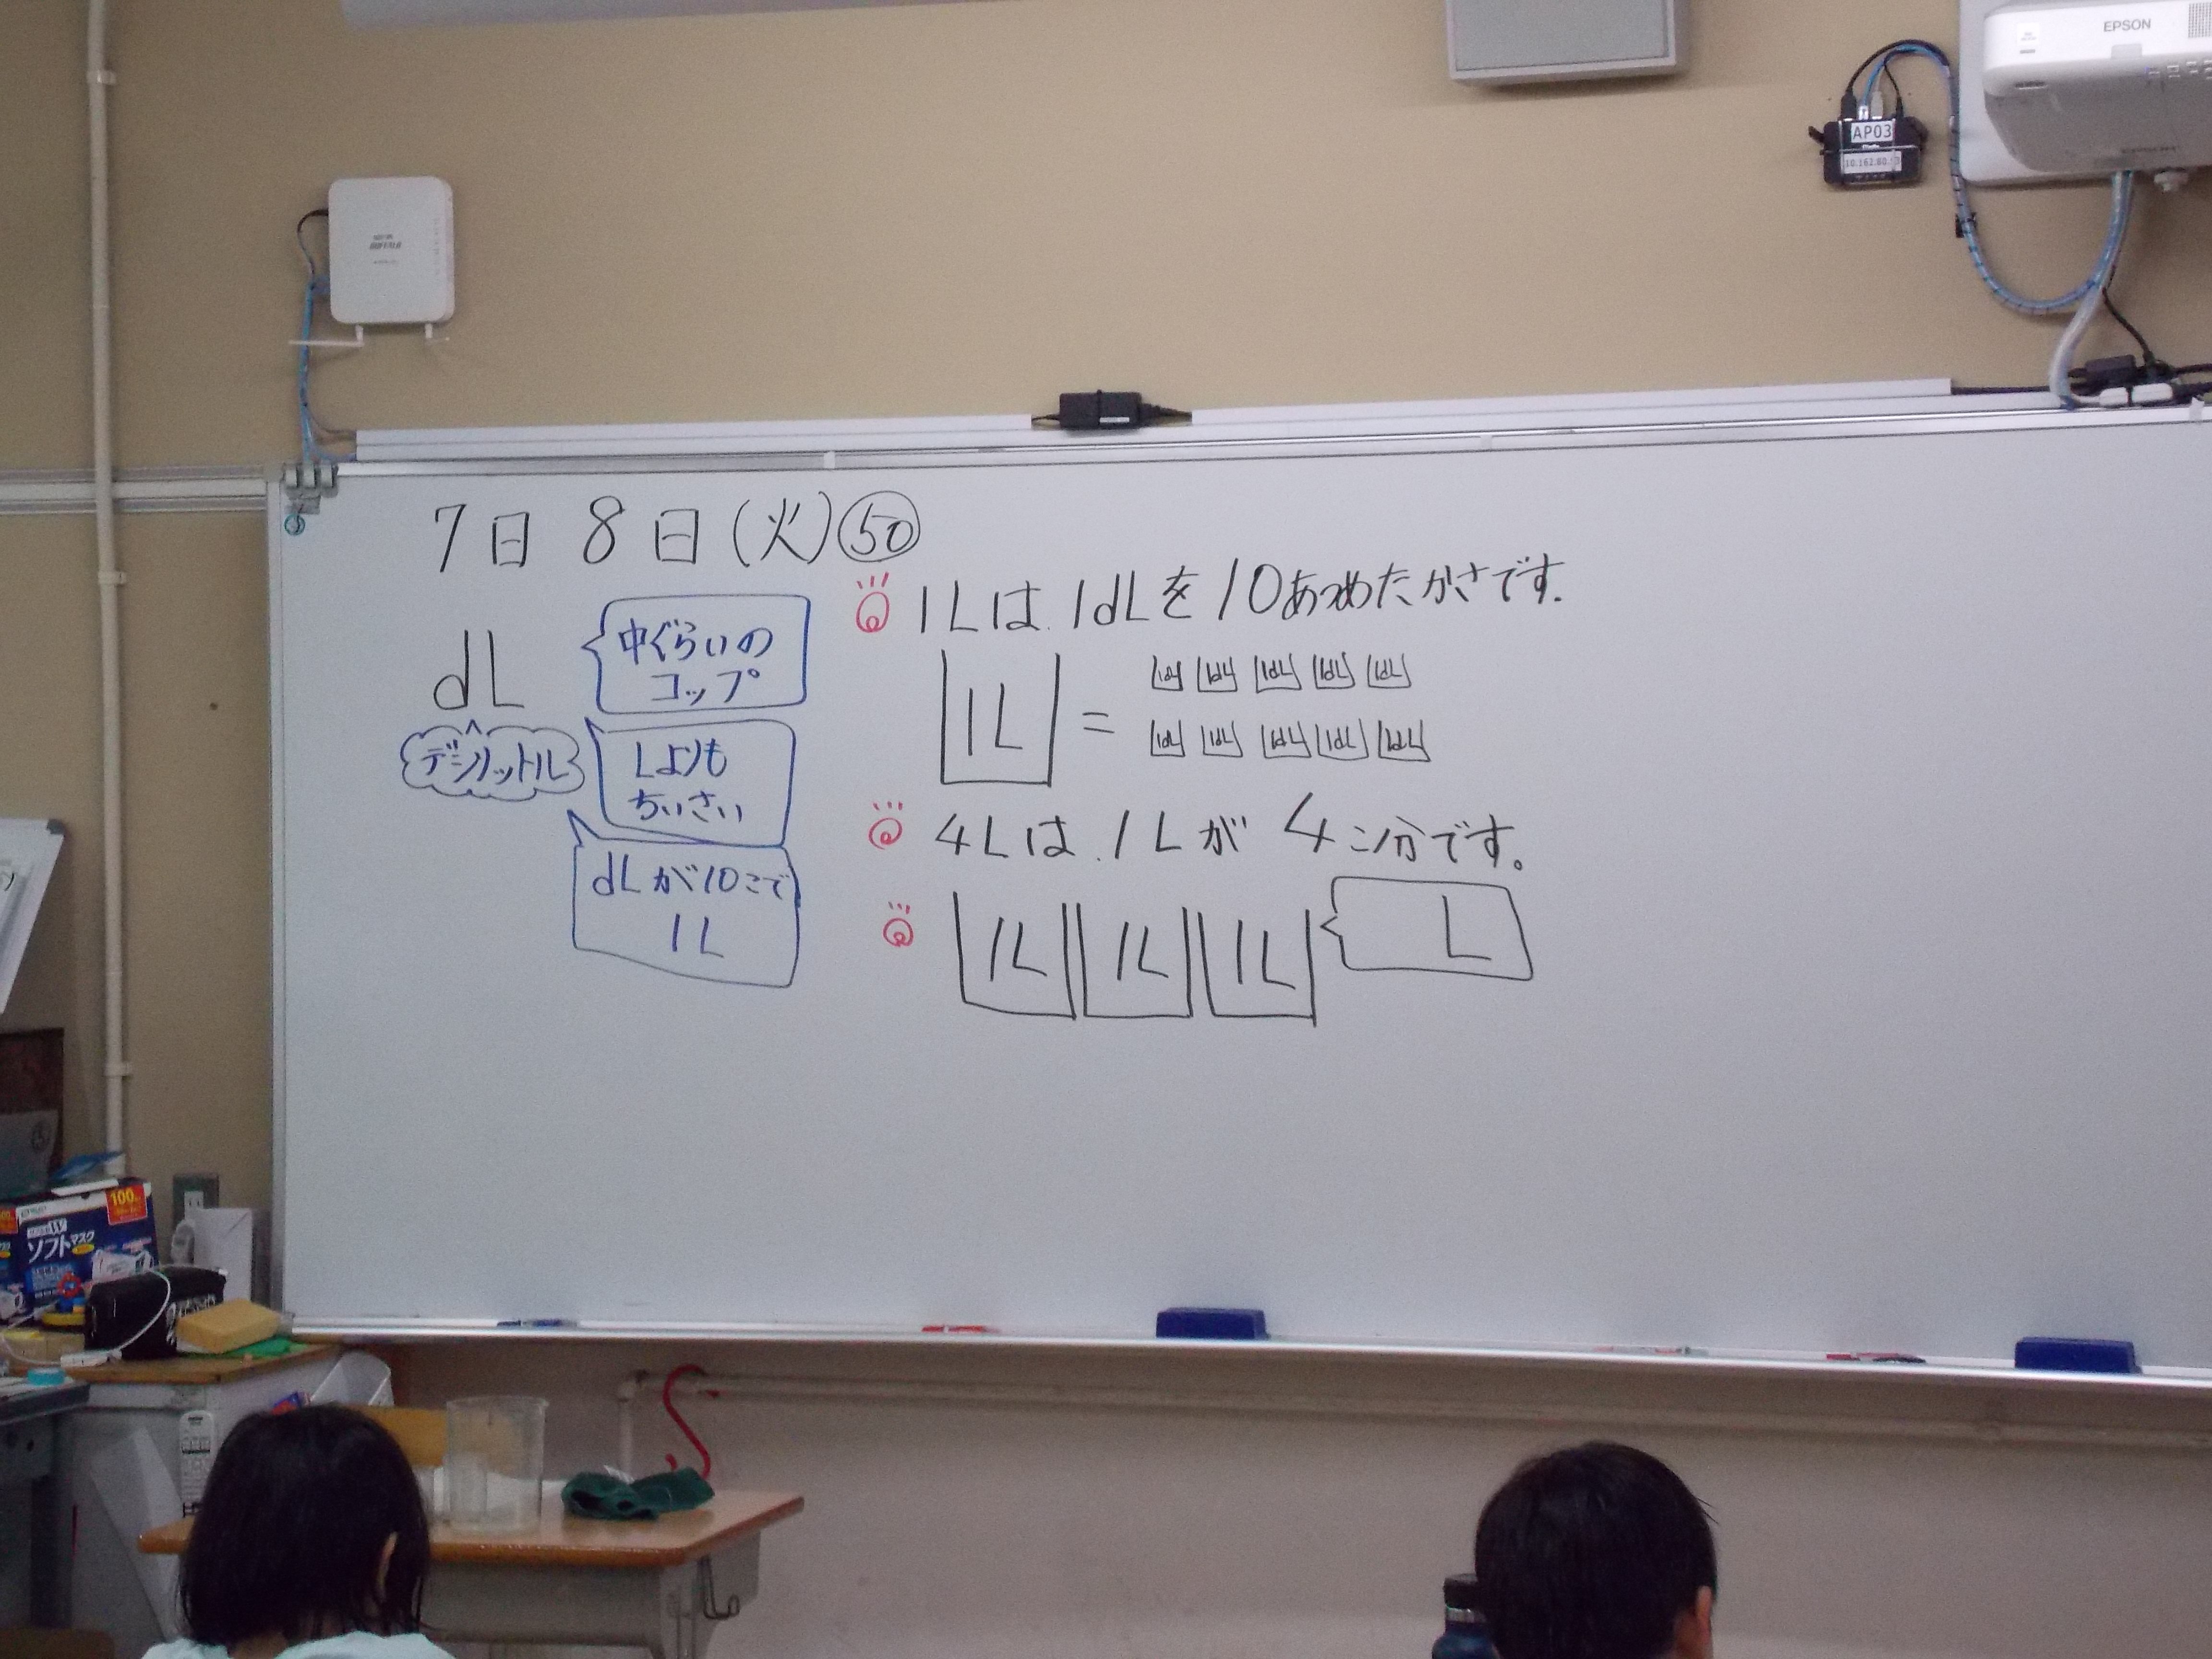 EPSON
AP03
BUFFALO
7日 8日(火)㊿
dL
デシリットル
中ぐらいの
コップ
Lよりも
ちいさい
dLが10こで
1L
1Lは1dLを10あつめたかさです.
1L = 1dL 1dL 1dL 1dL 1dL
1dL 1dL 1dL 1dL 1dL
4Lは1Lが4こ分です。
1L 1L 1L L
100
ソフトマスク